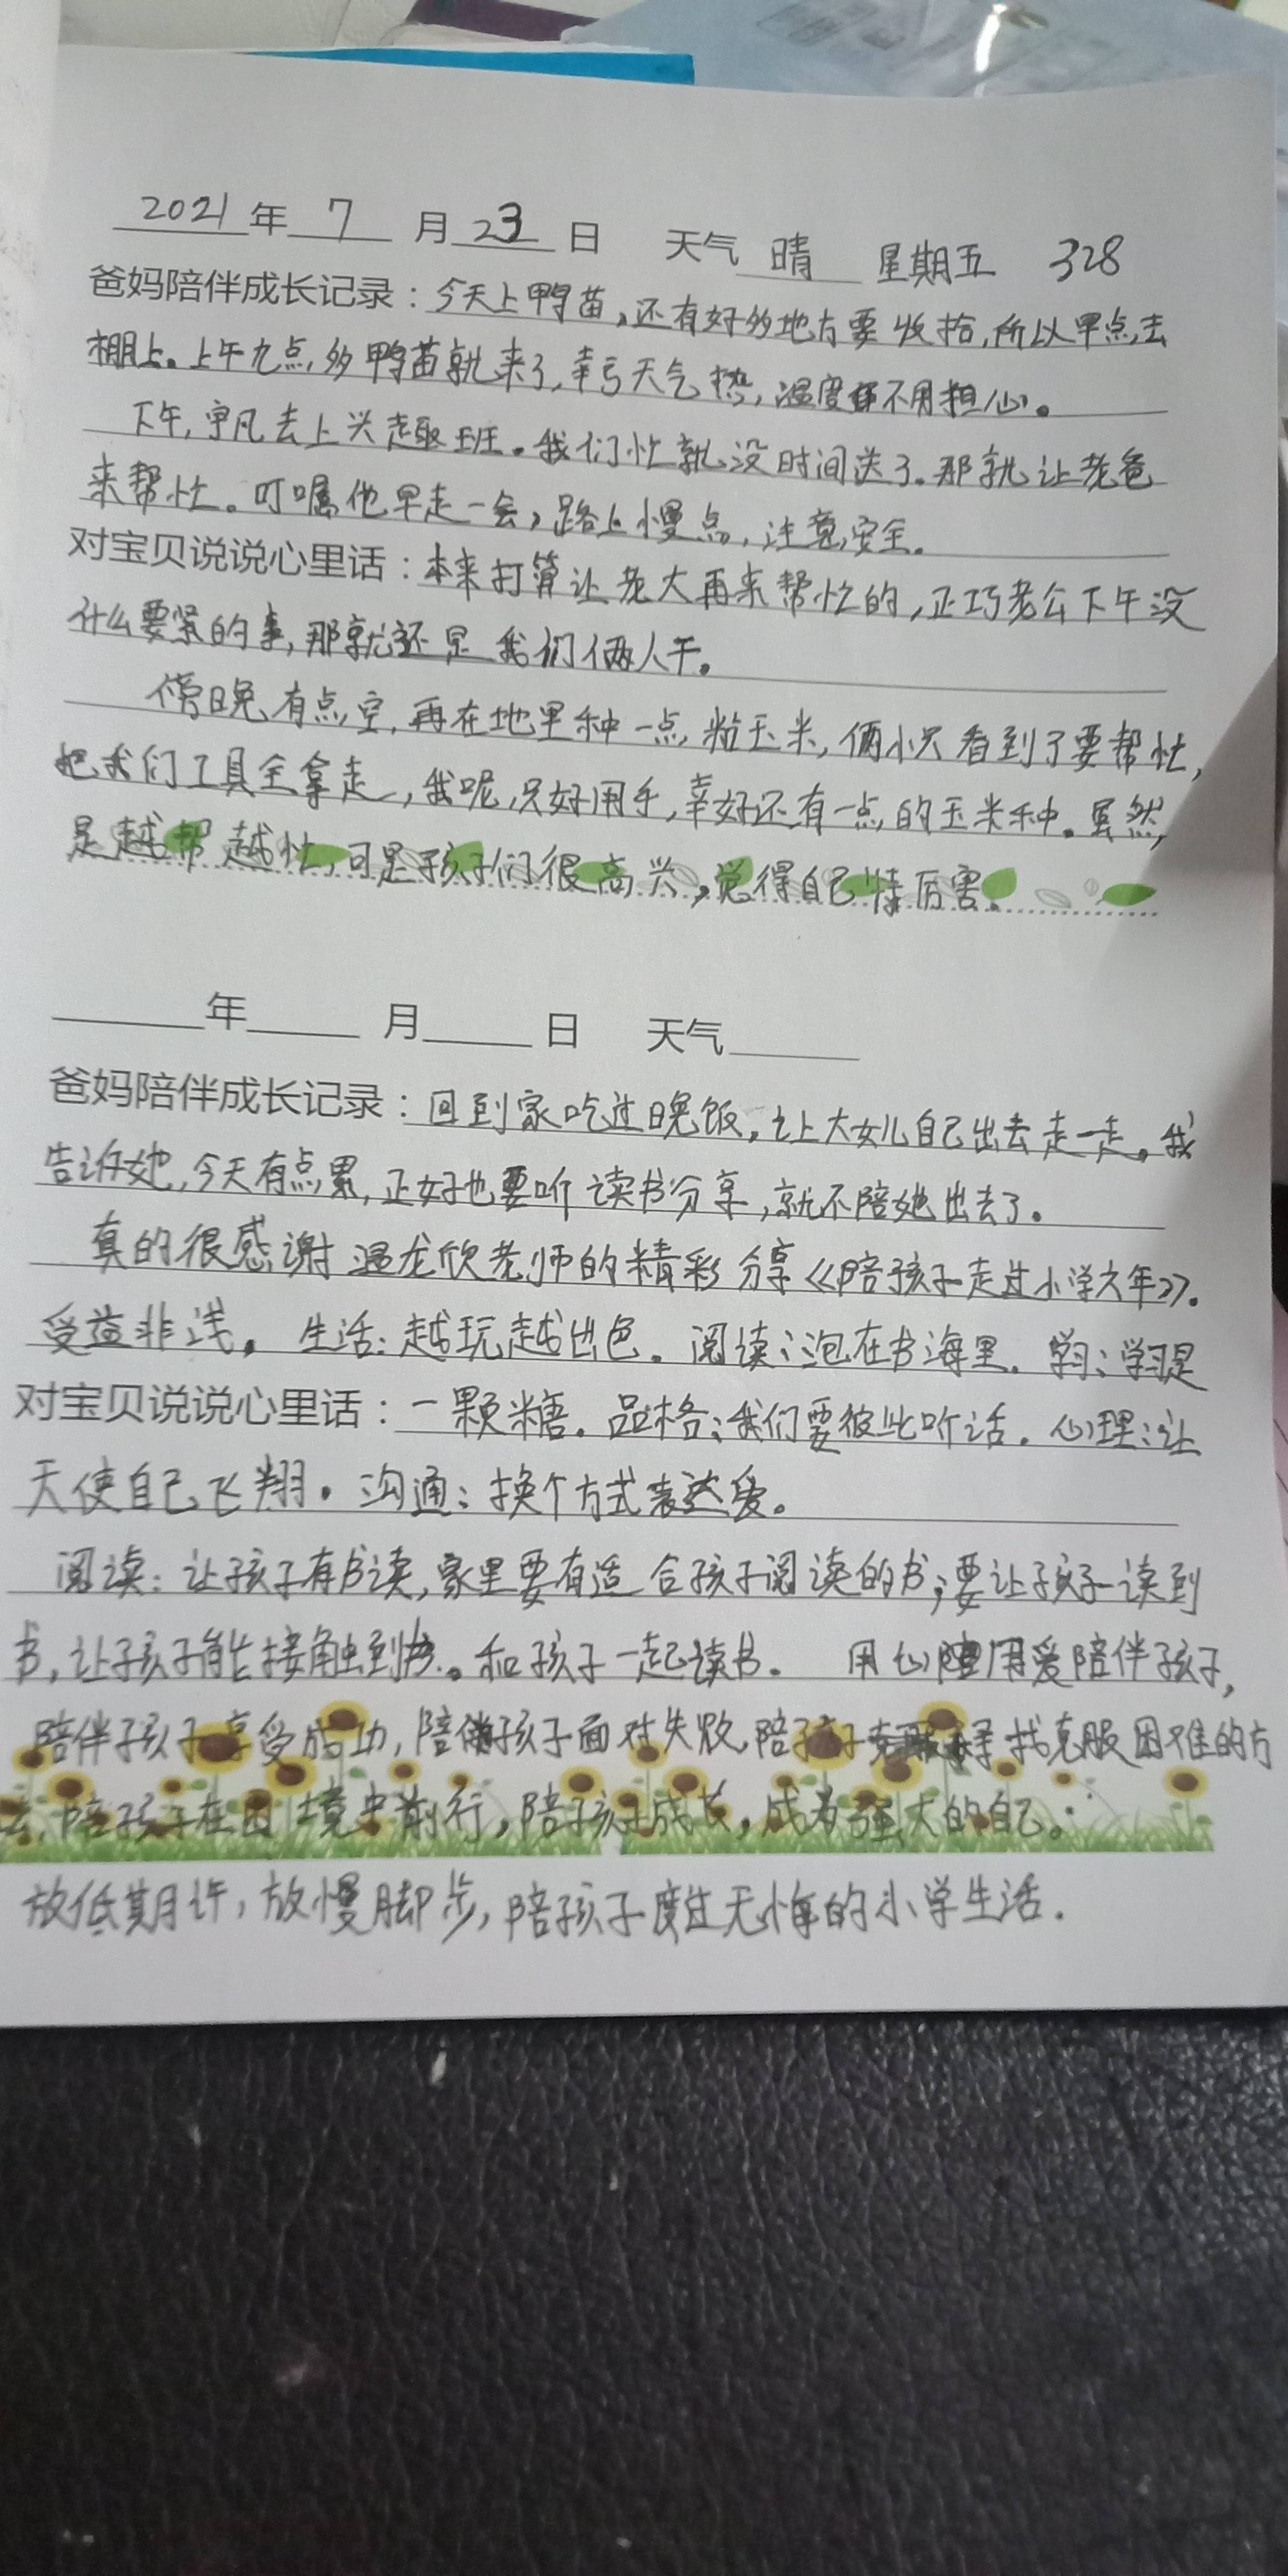 2021年 7 月 23 日 天气 晴 星期五 328
爸妈陪伴成长记录：今天上鸭苗，还有好多地方要收拾，所以早点去
棚上。上午九点多鸭苗就来了，幸亏天气热，温度不用担心。
下午，宇凡去上兴趣班。我们忙就没时间送了。那就让老爸
来帮忙。叮嘱他早走一会，路上慢点，注意安全。
对宝贝说说心里话：本来打算让老大再来帮忙的，正巧老公下午没
什么要紧的事，那就还是我们俩人干。
傍晚有点空，再在地里种一点粘玉米，俩小只看到了要帮忙，
把我们工具全拿走，我呢，只好用手，幸好还有一点的玉米种。虽然，
是越帮越忙，可是孩子们很高兴，觉得自己特厉害。
年 月 日 天气
爸妈陪伴成长记录：回到家吃过晚饭，让大女儿自己出去走一走。我
告诉她，今天有点累，正好也要听读书分享，就不陪她出去了。
真的很感谢温龙欣老师的精彩分享《陪孩子走过小学六年》。
受益非浅。生活：越玩越出色。阅读：泡在书海里。学习：学习是
对宝贝说说心里话：一颗糖。品格：我们要彼此听话。心理：让
天使自己飞翔。沟通：换个方式表达爱。
阅读：让孩子有书读，家里要有适合孩子阅读的书；要让孩子读到
书，让孩子能接触到书。和孩子一起读书。 用心用爱陪伴孩子，
陪伴孩子享受成功，陪伴孩子面对失败，陪孩子寻找克服困难的方
法，陪孩子在困境中前行，陪孩子成长，成为强大的自己。
放低期许，放慢脚步，陪孩子度过无悔的小学生活.